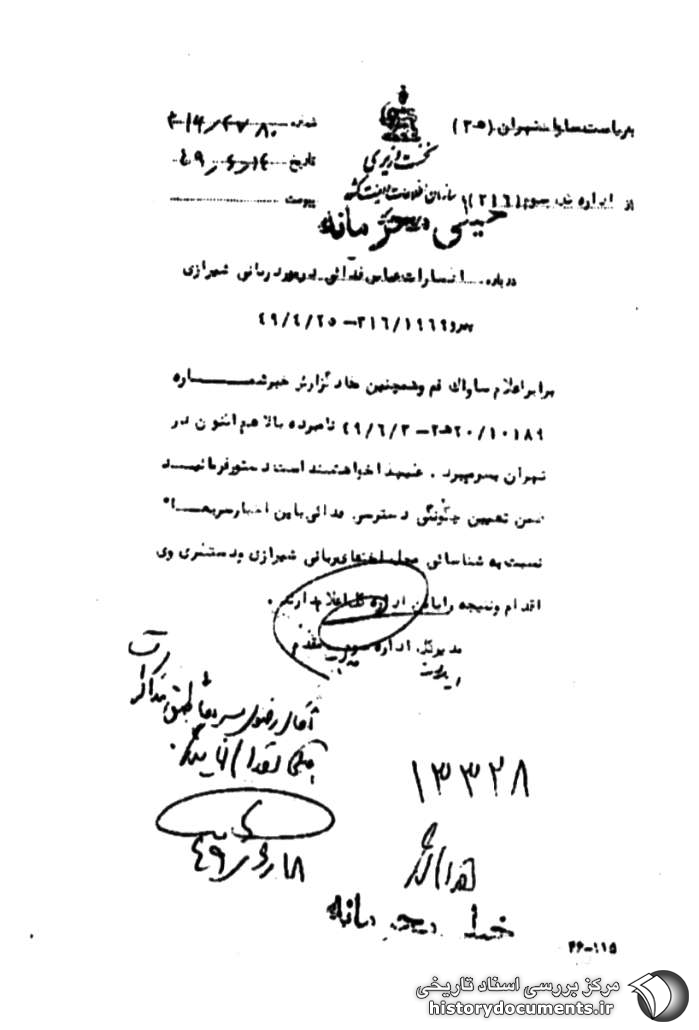 به ریاست ساواک تهران (۲۰ه۳)
شماره ۳۱۴/۴۷۸۰
نخست وزیری
تاریخ ۴۹/۶/۱۴
سازمان اطلاعات و امنیت کشور
از اداره کل سوم (۳۱۶)
پیوست
خیلی محرمانه
درباره اظهارات عباس فدائی در مورد ربانی شیرازی
پیرو ۳۱۶/۱۹۶۹ – ۴۹/۴/۲۵
برابر اعلام ساواک قم و همچنین مفاد گزارش خبر شماره
۲۰/۱۰۱۸۹ه۲ – ۴۹/۶/۳ نامبرده بالا هم اکنون در
تهران بسر میبرد . علیهذا خواهشمند است دستور فرمائید
ضمن تعیین چگونگی دسترسی فدائی باین اخبار سریعا"
نسبت به شناسائی محل اختفای ربانی شیرازی و دستگیری وی
اقدام و نتیجه را باین اداره کل اعلام دارند .
مدیرکل اداره سوم . مقدم
آقای رضوی سریعا طبق مذاکره
اقدام نمایید .
۱۳۳۲۸
۱۸
۴۹
اقدام شد
خیلی محرمانه
۳۶-۱۱۵
مرکز بررسی اسناد تاریخی
historydocuments.ir